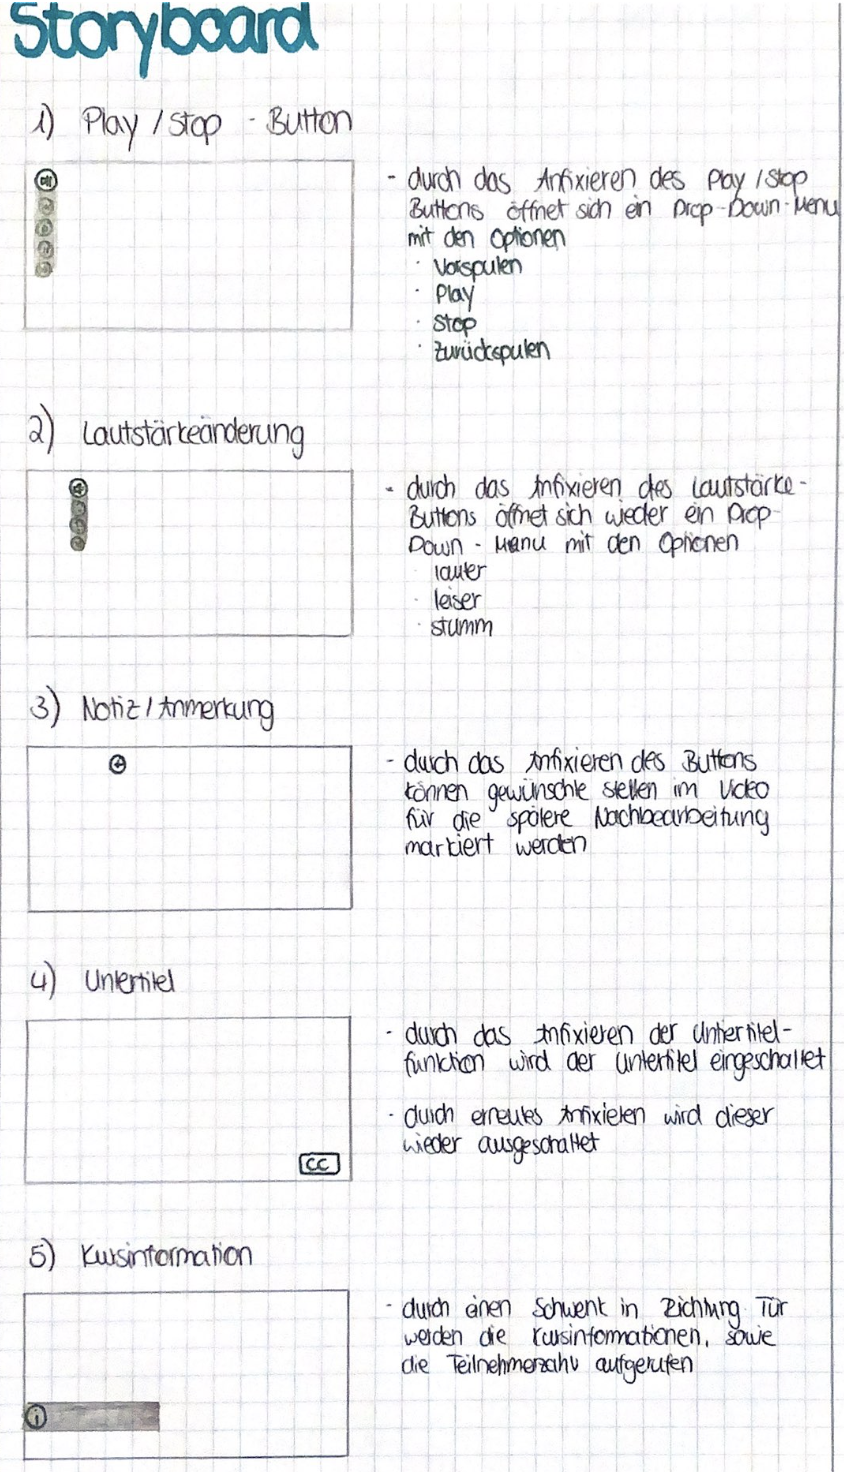 Storyboard
1) Play / Stop - Button
- durch das Anfixieren des Play / Stop
Buttons öffnet sich ein Drop-Down-Menu
mit den Optionen
· Vorspulen
· Play
· Stop
· Zurückspulen
2) Lautstärkeänderung
- durch das Anfixieren des Lautstärke-
Buttons öffnet sich wieder ein Drop-
Down - Menu mit den Optionen
· lauter
· leiser
· stumm
3) Notiz / Anmerkung
- durch das Anfixieren des Buttons
können gewünschte Stellen im Video
für die spätere Nachbearbeitung
markiert werden
4) Untertitel
- durch das Anfixieren der Untertitel-
funktion wird der Untertitel eingeschaltet
- durch erneutes Anfixieren wird dieser
wieder ausgeschaltet
CC
5) Kursinformation
- durch einen Schwenk in Richtung Tür
werden die Kursinformationen, sowie
die Teilnehmerzahl aufgerufen
i